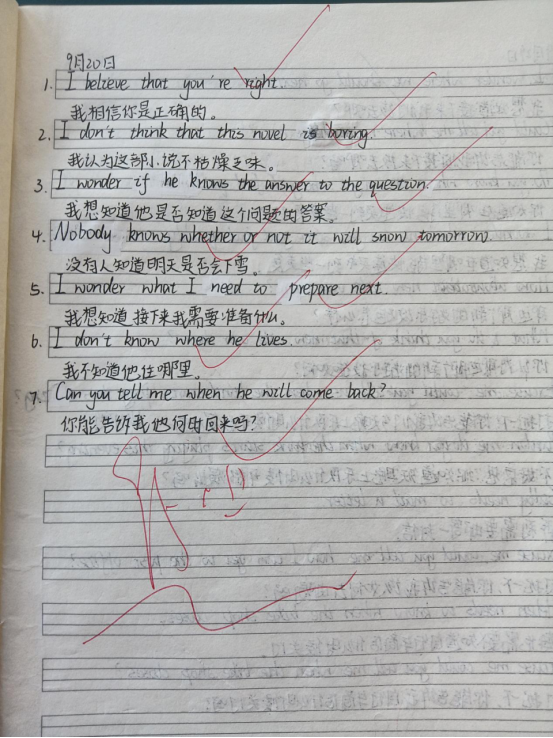 9月20日
1. I believe that you're right.
我相信你是正确的。
2. I don't think that this novel is boring.
我认为这部小说不枯燥乏味。
3. I wonder if he knows the answer to the question.
我想知道他是否知道这个问题的答案。
4. Nobody knows whether or not it will snow tomorrow.
没有人知道明天是否会下雪。
5. I wonder what I need to prepare next.
我想知道接下来我需要准备什么。
6. I don't know where he lives.
我不知道他住哪里。
7. Can you tell me when he will come back?
你能告诉我他何时回来吗?